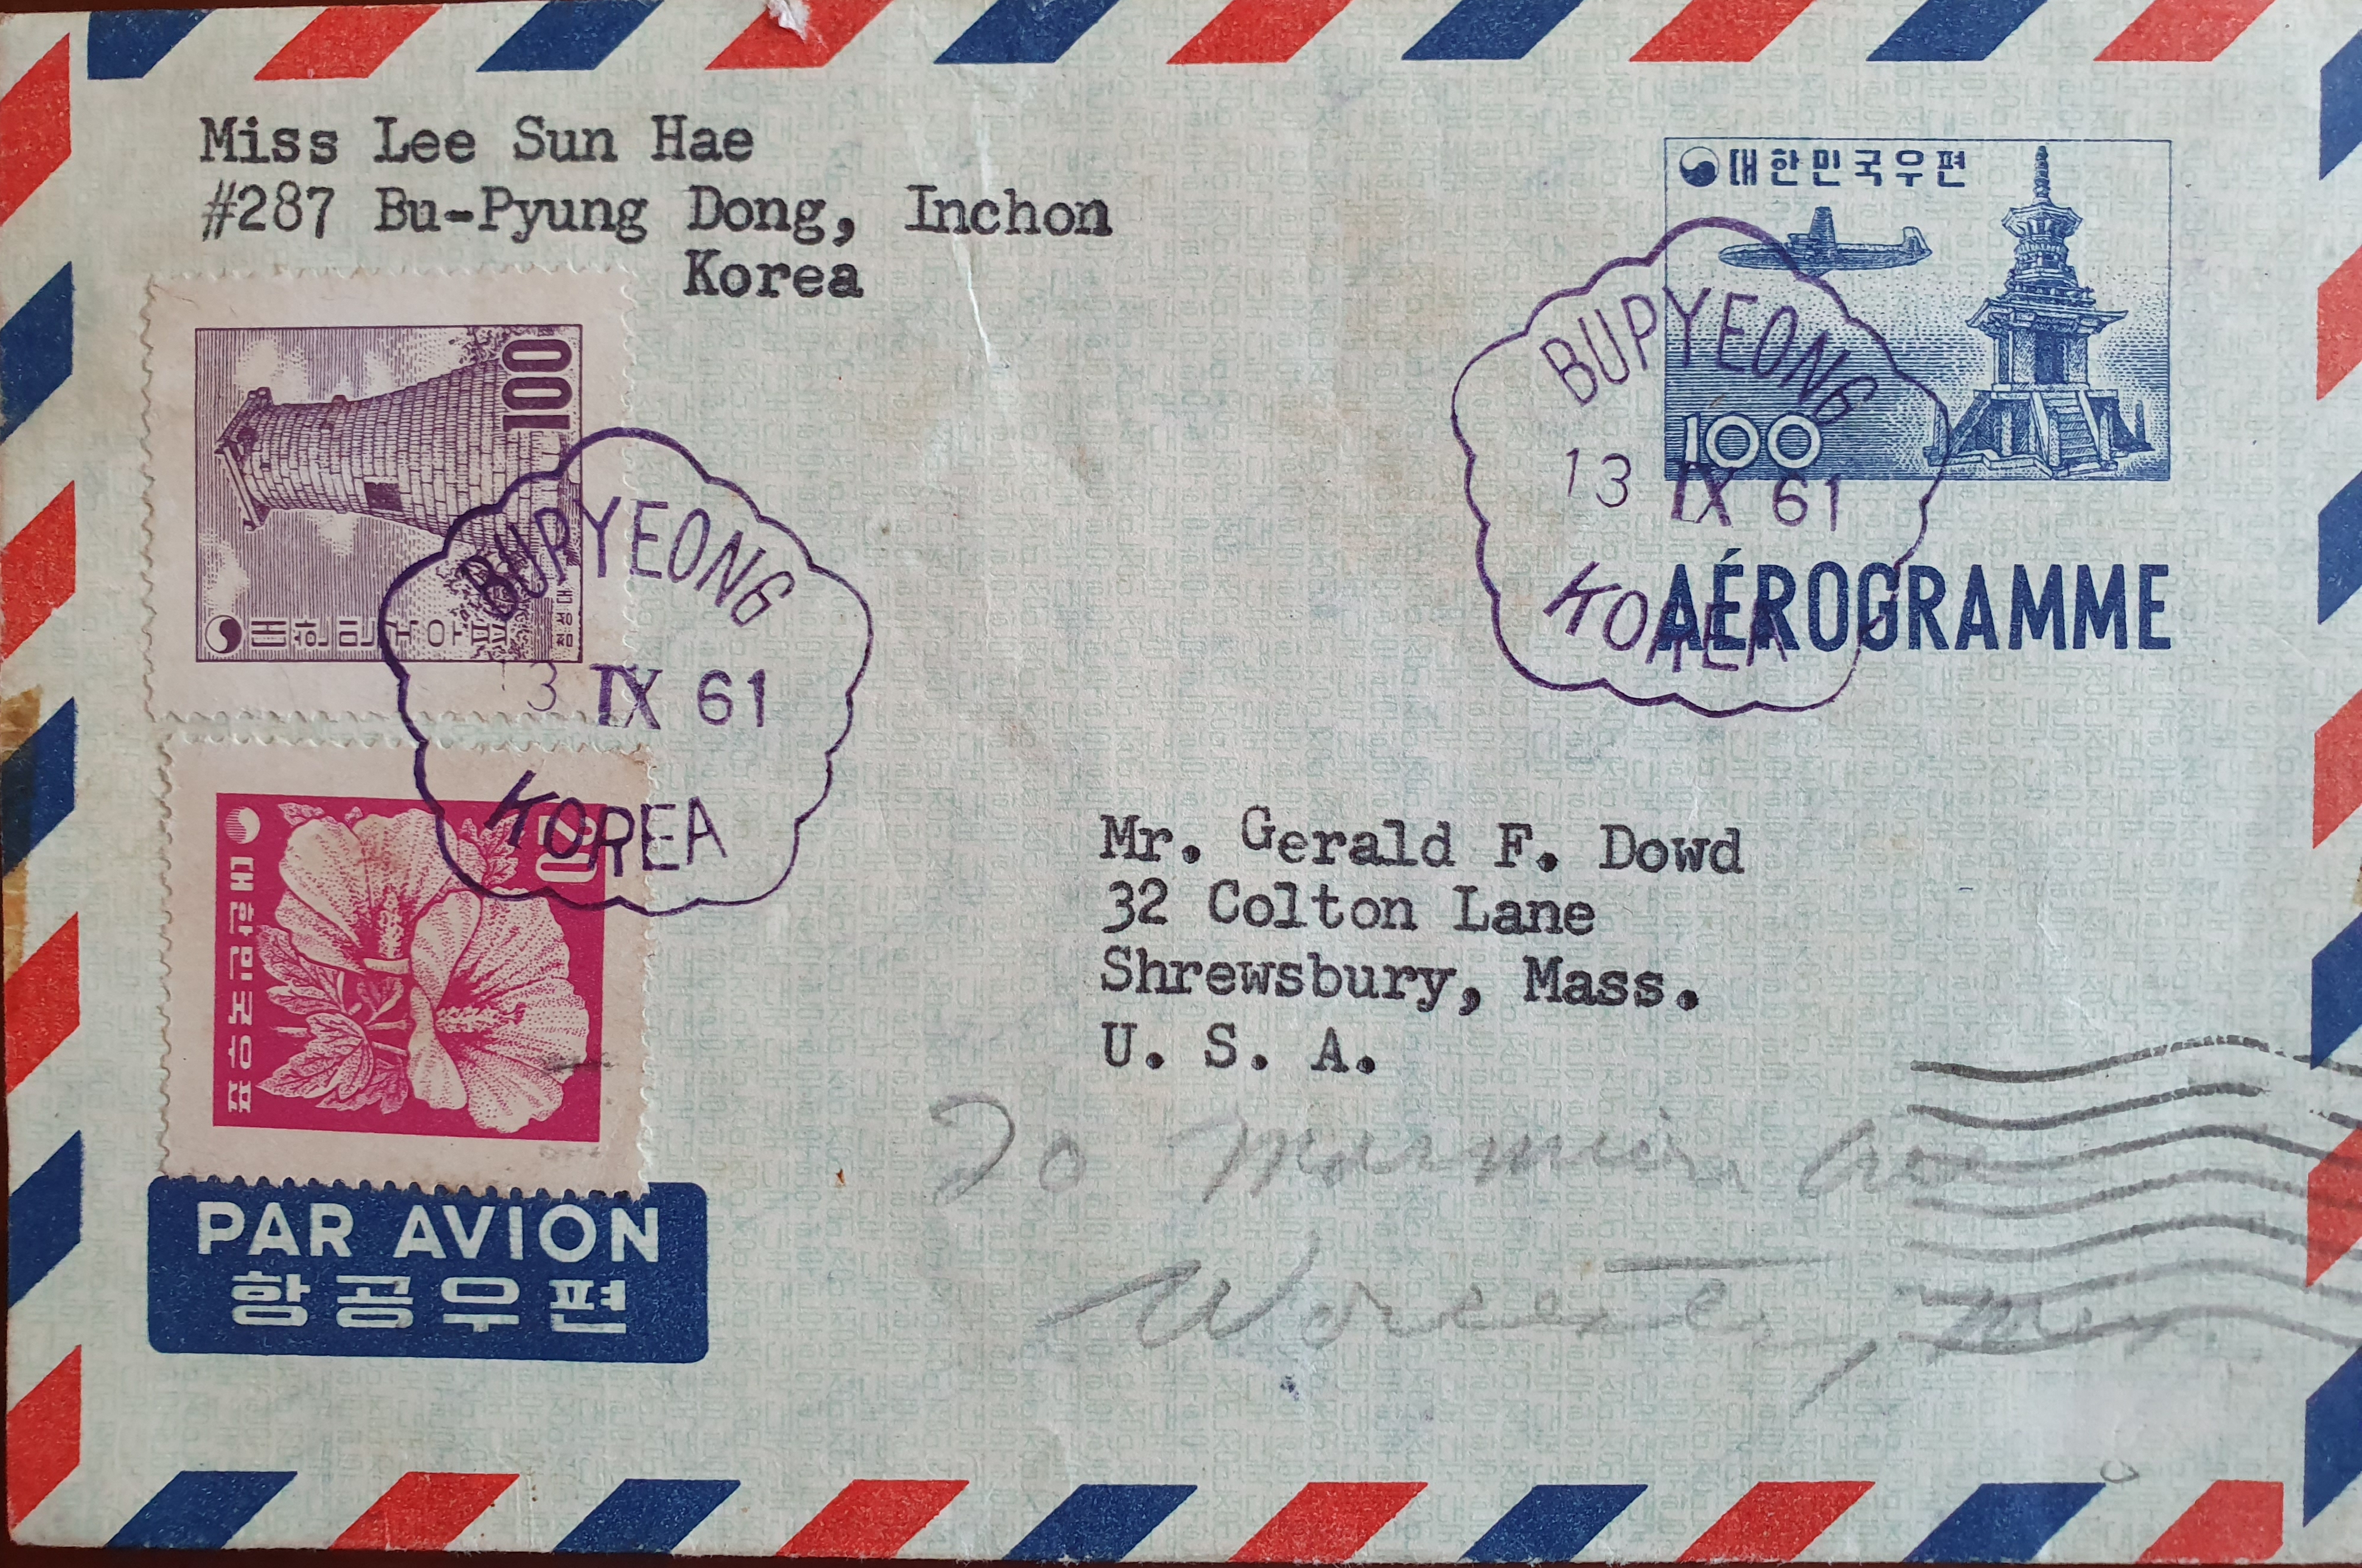 Miss Lee Sun Hae
#287 Bu-Pyung Dong, Inchon
Korea
대한민국우편
100
AÉROGRAMME
BUPYEONG
13 IX 61
KOREA
100
대한민국우표
첨성대
BUPYEONG
3 IX 61
KOREA
대한민국우표
Mr. Gerald F. Dowd
32 Colton Lane
Shrewsbury, Mass.
U. S. A.
Worcester,
PAR AVION
항공우편